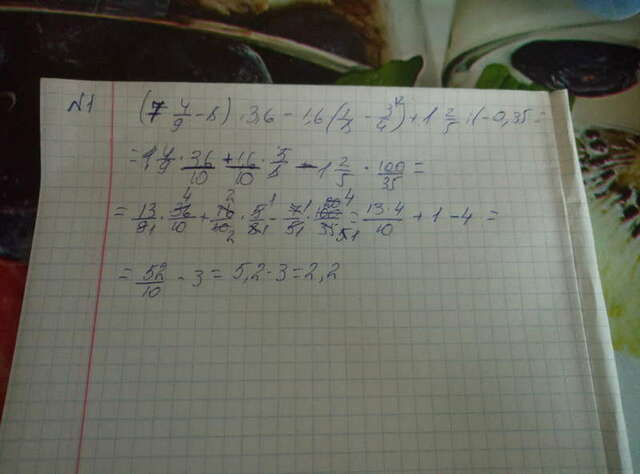 №1 (7 4/9 - 8) · 3,6 - 1,6 (1/8 - 3/4) + 1 2/5 : (-0,35 =
= 1 4/9 · 36/10 + 16/10 · 5/8 - 1 2/5 · 100/35 =
= 13/9 · 36/10 + 16/10 · 5/8 - 7/5 · 100/35 = 13·4/10 + 1 - 4 =
= 52/10 - 3 = 5,2 - 3 = 2,2